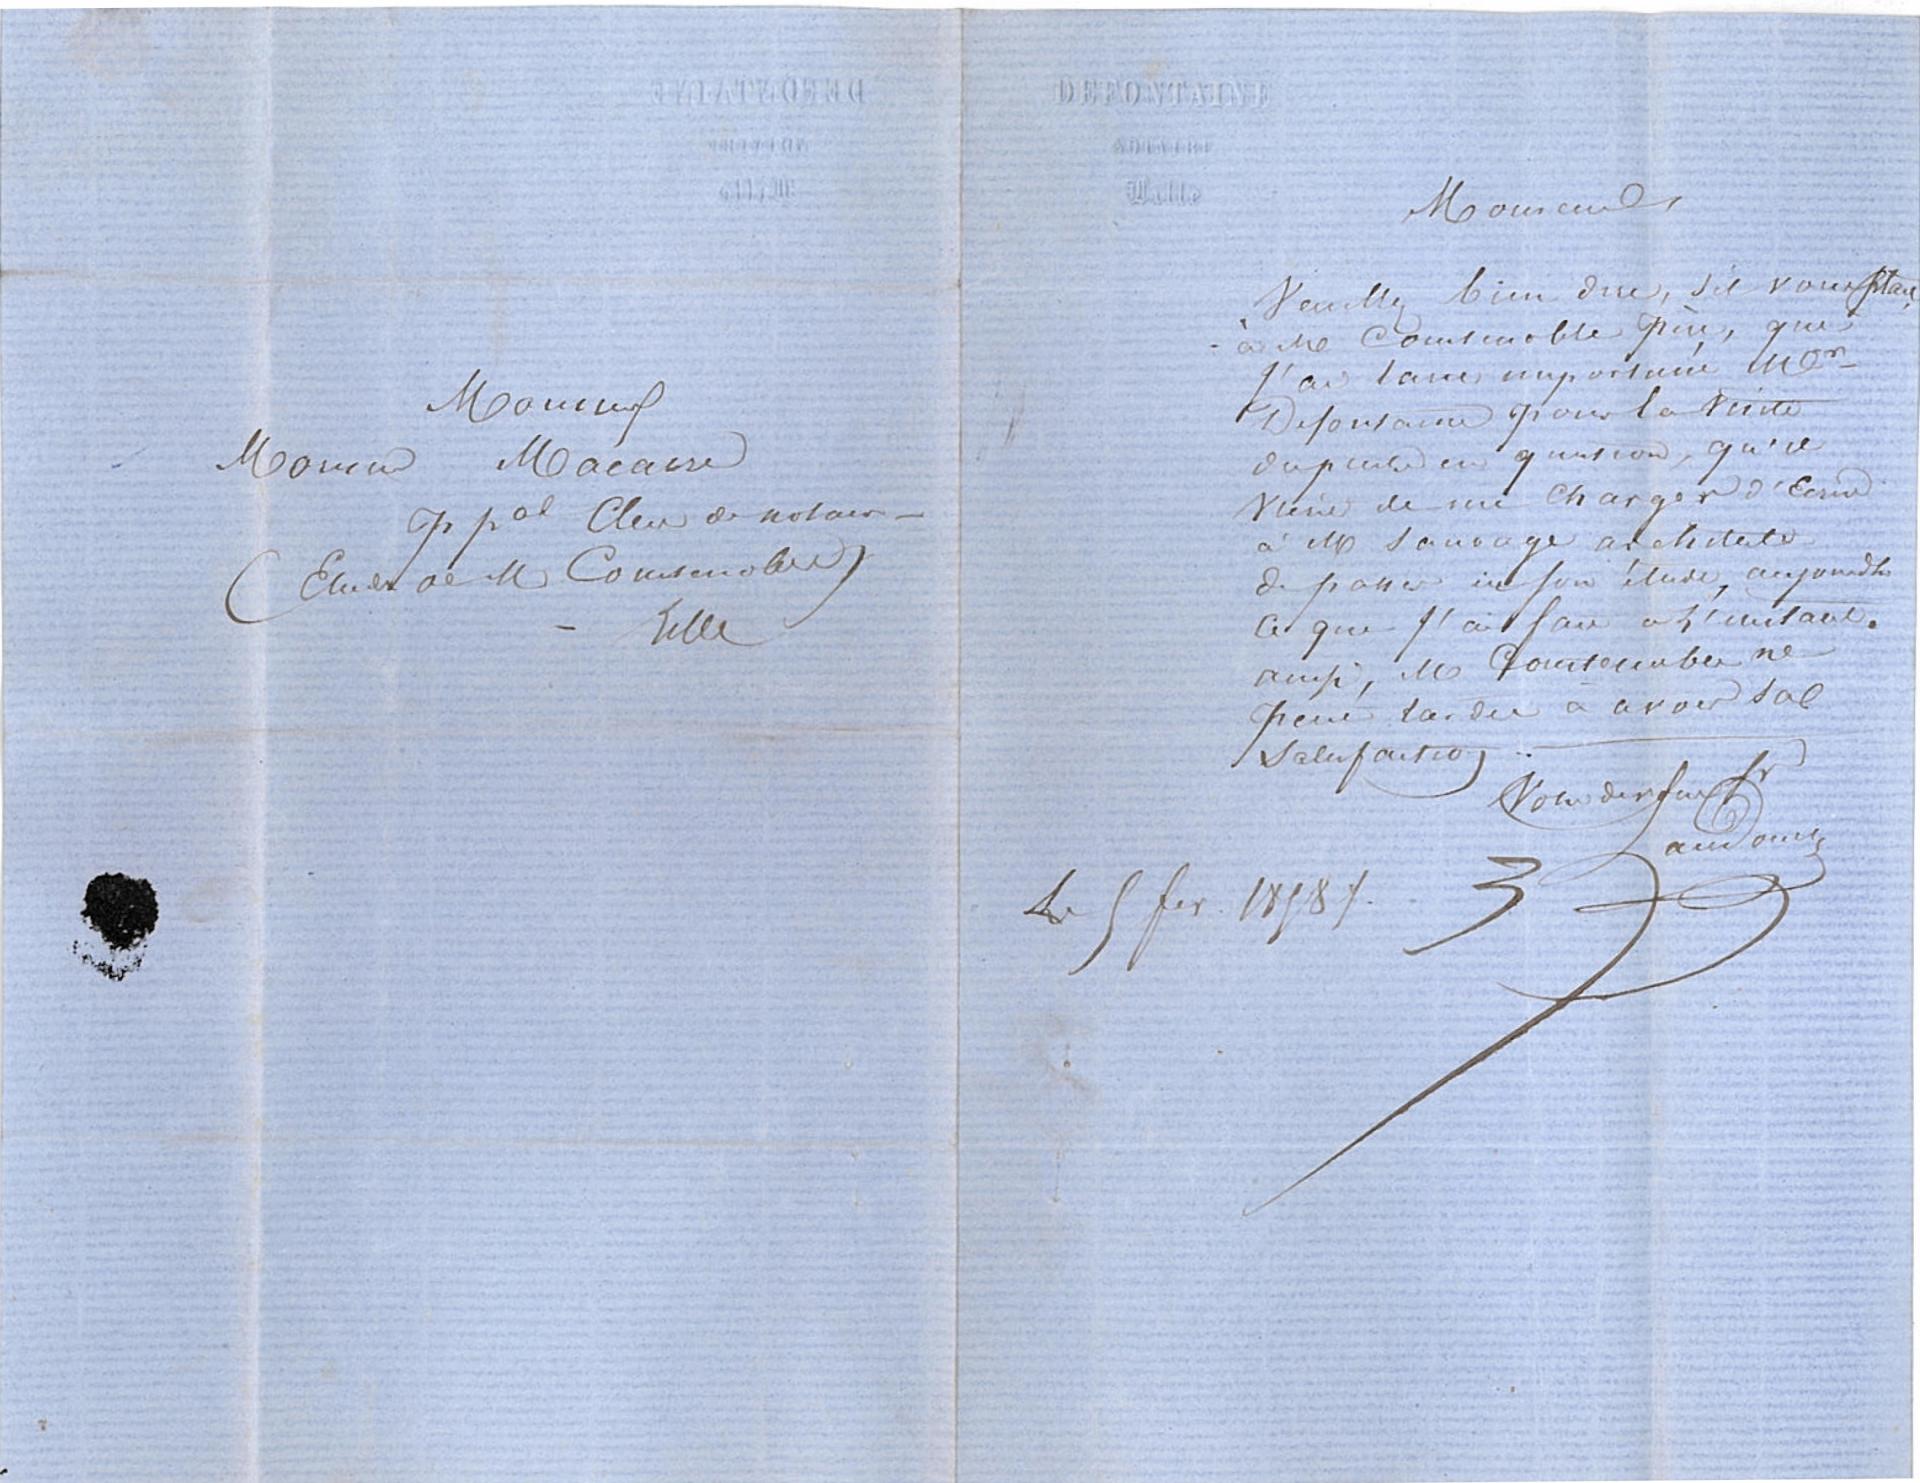 DEFONTAINE
NOTAIRE
LILLE
Monsieur
Monsieur Macaire
Ppal Clerc de notaire
(Etude de M Courtenoble)
Lille
Monsieur,
Veuillez bien dire, s'il vous plait,
à M Courtenoble Père, que
j'ai tant importuné Mr
Defontaine pour la visite
en question, qu'il
vient de me charger d'Ecrire
à M Sauvage architecte
de passer en son étude, aujourd'h
ce que j'ai fait à l'instant.
ainsi, M Courtenoble ne
peut tarder à avoir
satisfaction
Votre
Le 5 fev. 1858